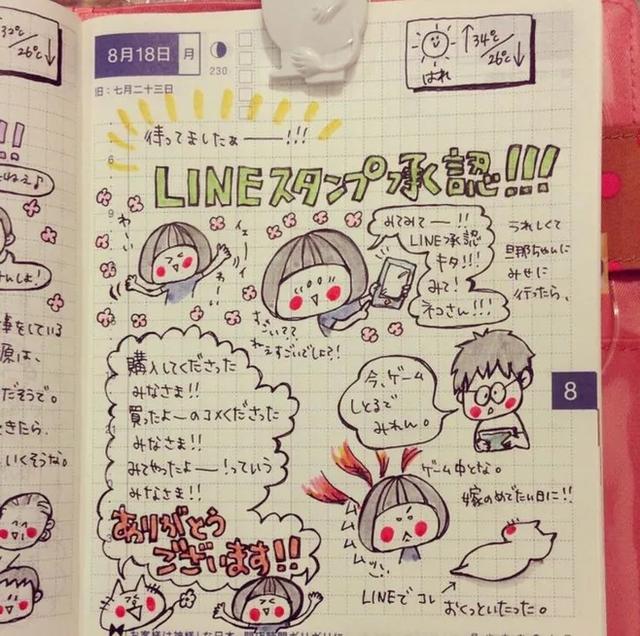 8月18日 月
230
旧：七月二十三日
↑34℃/26℃↓
はれ
32℃/26℃↓
待ってましたぁーー!!!
LINEスタンプ承認!!!
わーい
イェーイ
みてみてー!!
LINE承認
キタ!!!
みて!
ネコさん!!!
うれしくて
旦那ちゃんに
みせに
行ったら、
すごい??
ねえすごいでしょ?!
購入してくださった
みなさま!!
買ったよーのコメくださった
みなさま!!
みてやったよー!っていう
みなさま!!
ありがとう
ございます!!
今、ゲーム
しとるで
みれん。
8
ゲーム中とな。
嫁のめでたい日に!!
ムムムム
LINEでコレ
おくっといたった。
ねえ♪
んしょ!
事をしている
原は、
だそうで。
きたら、
いくそうな。